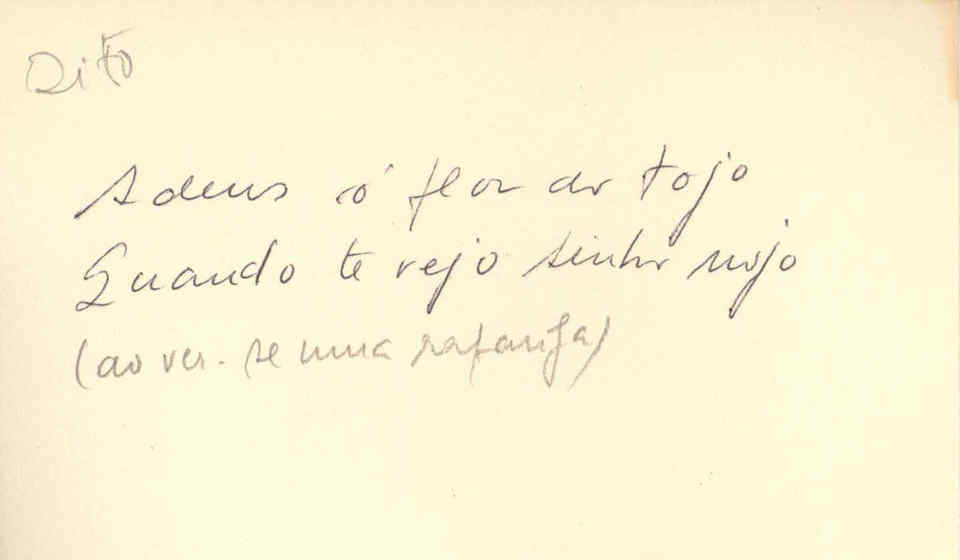 Dito
Adeus ó flor do tojo
Quando te vejo sinto nojo
(ao ver-se uma rapariga)